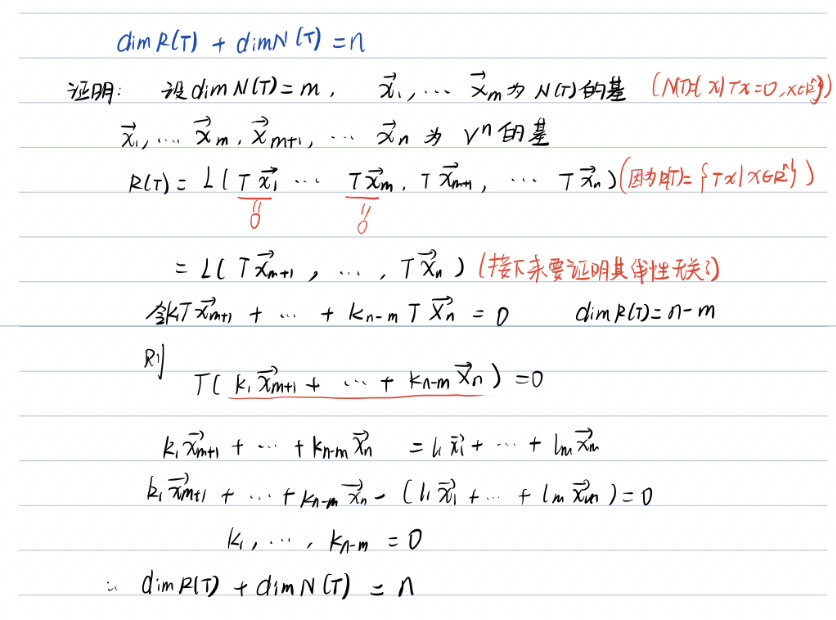 dim R(T) + dim N(T) = n
证明: 设 dim N(T) = m, x⃗₁, … x⃗ₘ 为 N(T) 的基 (N(T)={x|Tx=0,x∈Rⁿ})
x⃗₁, … x⃗ₘ, x⃗ₘ₊₁, … x⃗ₙ 为 Vⁿ 的基
R(T) = L(Tx⃗₁ … Tx⃗ₘ, Tx⃗ₘ₊₁, … Tx⃗ₙ) (因为R(T)={Tx|x∈Rⁿ})
= 0⃗ = 0⃗
= L(Tx⃗ₘ₊₁, …, Tx⃗ₙ) (接下来要证明其线性无关)
令k₁Tx⃗ₘ₊₁ + … + kₙ₋ₘTx⃗ₙ = 0 dim R(T) = n-m
则
T(k₁x⃗ₘ₊₁ + … + kₙ₋ₘx⃗ₙ) = 0
k₁x⃗ₘ₊₁ + … + kₙ₋ₘx⃗ₙ = l₁x⃗₁ + … + lₘx⃗ₘ
k₁x⃗ₘ₊₁ + … + kₙ₋ₘx⃗ₙ - (l₁x⃗₁ + … + lₘx⃗ₘ) = 0
k₁, …, kₙ₋ₘ = 0
∴ dim R(T) + dim N(T) = n